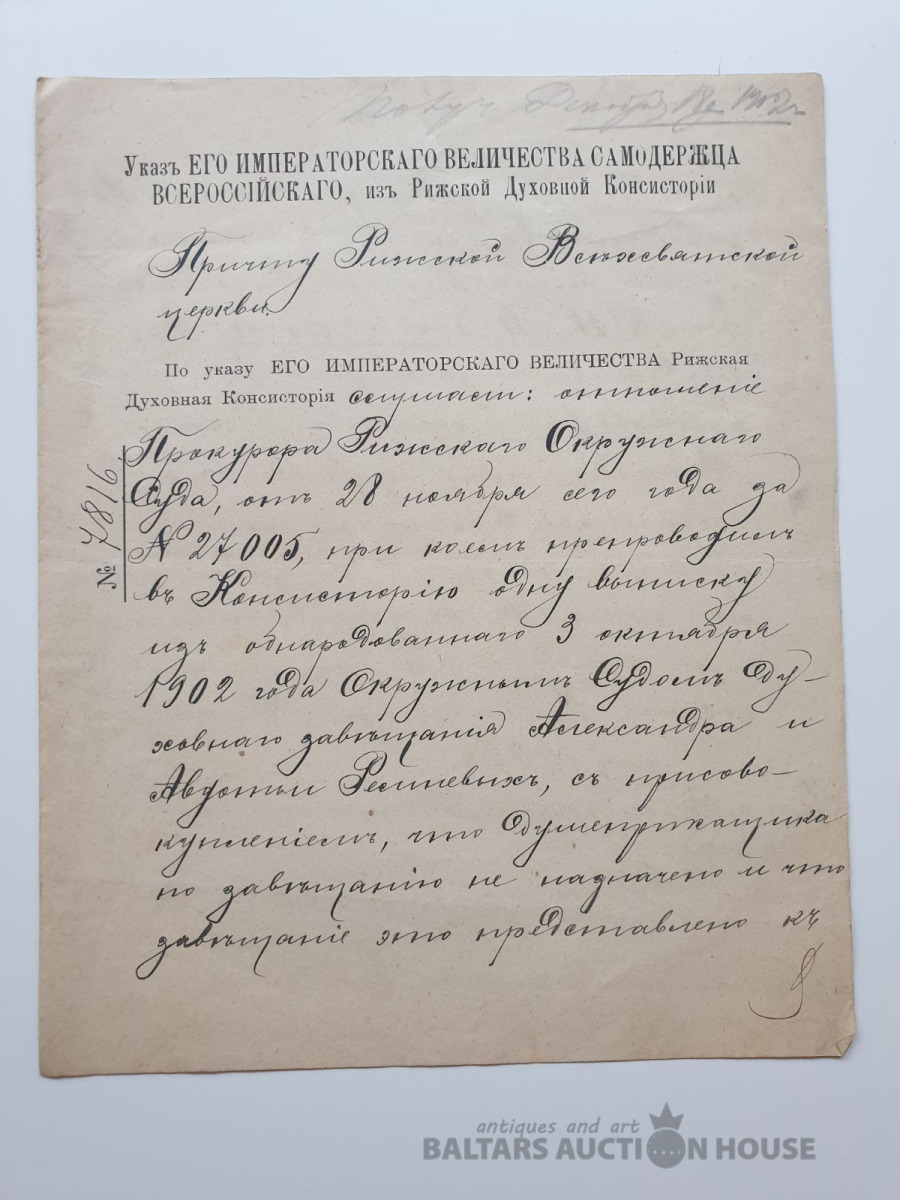 Получ. Декабря 1902 г.
Указъ ЕГО ИМПЕРАТОРСКАГО ВЕЛИЧЕСТВА САМОДЕРЖЦА
ВСЕРОССІЙСКАГО, изъ Рижской Духовной Консисторіи
Причту Рижской Всѣхсвятской
церкви.
По указу ЕГО ИМПЕРАТОРСКАГО ВЕЛИЧЕСТВА Рижская
Духовная Консисторія слушаетъ: отношеніе
Прокурора Рижскаго Окружнаго
Суда, отъ 28 ноября сего года за
№ 27005, при коемъ препроводилъ
въ Консисторію одну выписку
изъ обнародованнаго 3 октября
1902 года Окружнымъ Судомъ ду-
ховнаго завѣщанія Александра и
Авдотьи, съ присово-
купленіемъ, что душеприкащика
по завѣщанію не назначено и что
завѣщаніе это представлено къ
№ 7816.
antiques and art
BALTARS AUCTION HOUSE